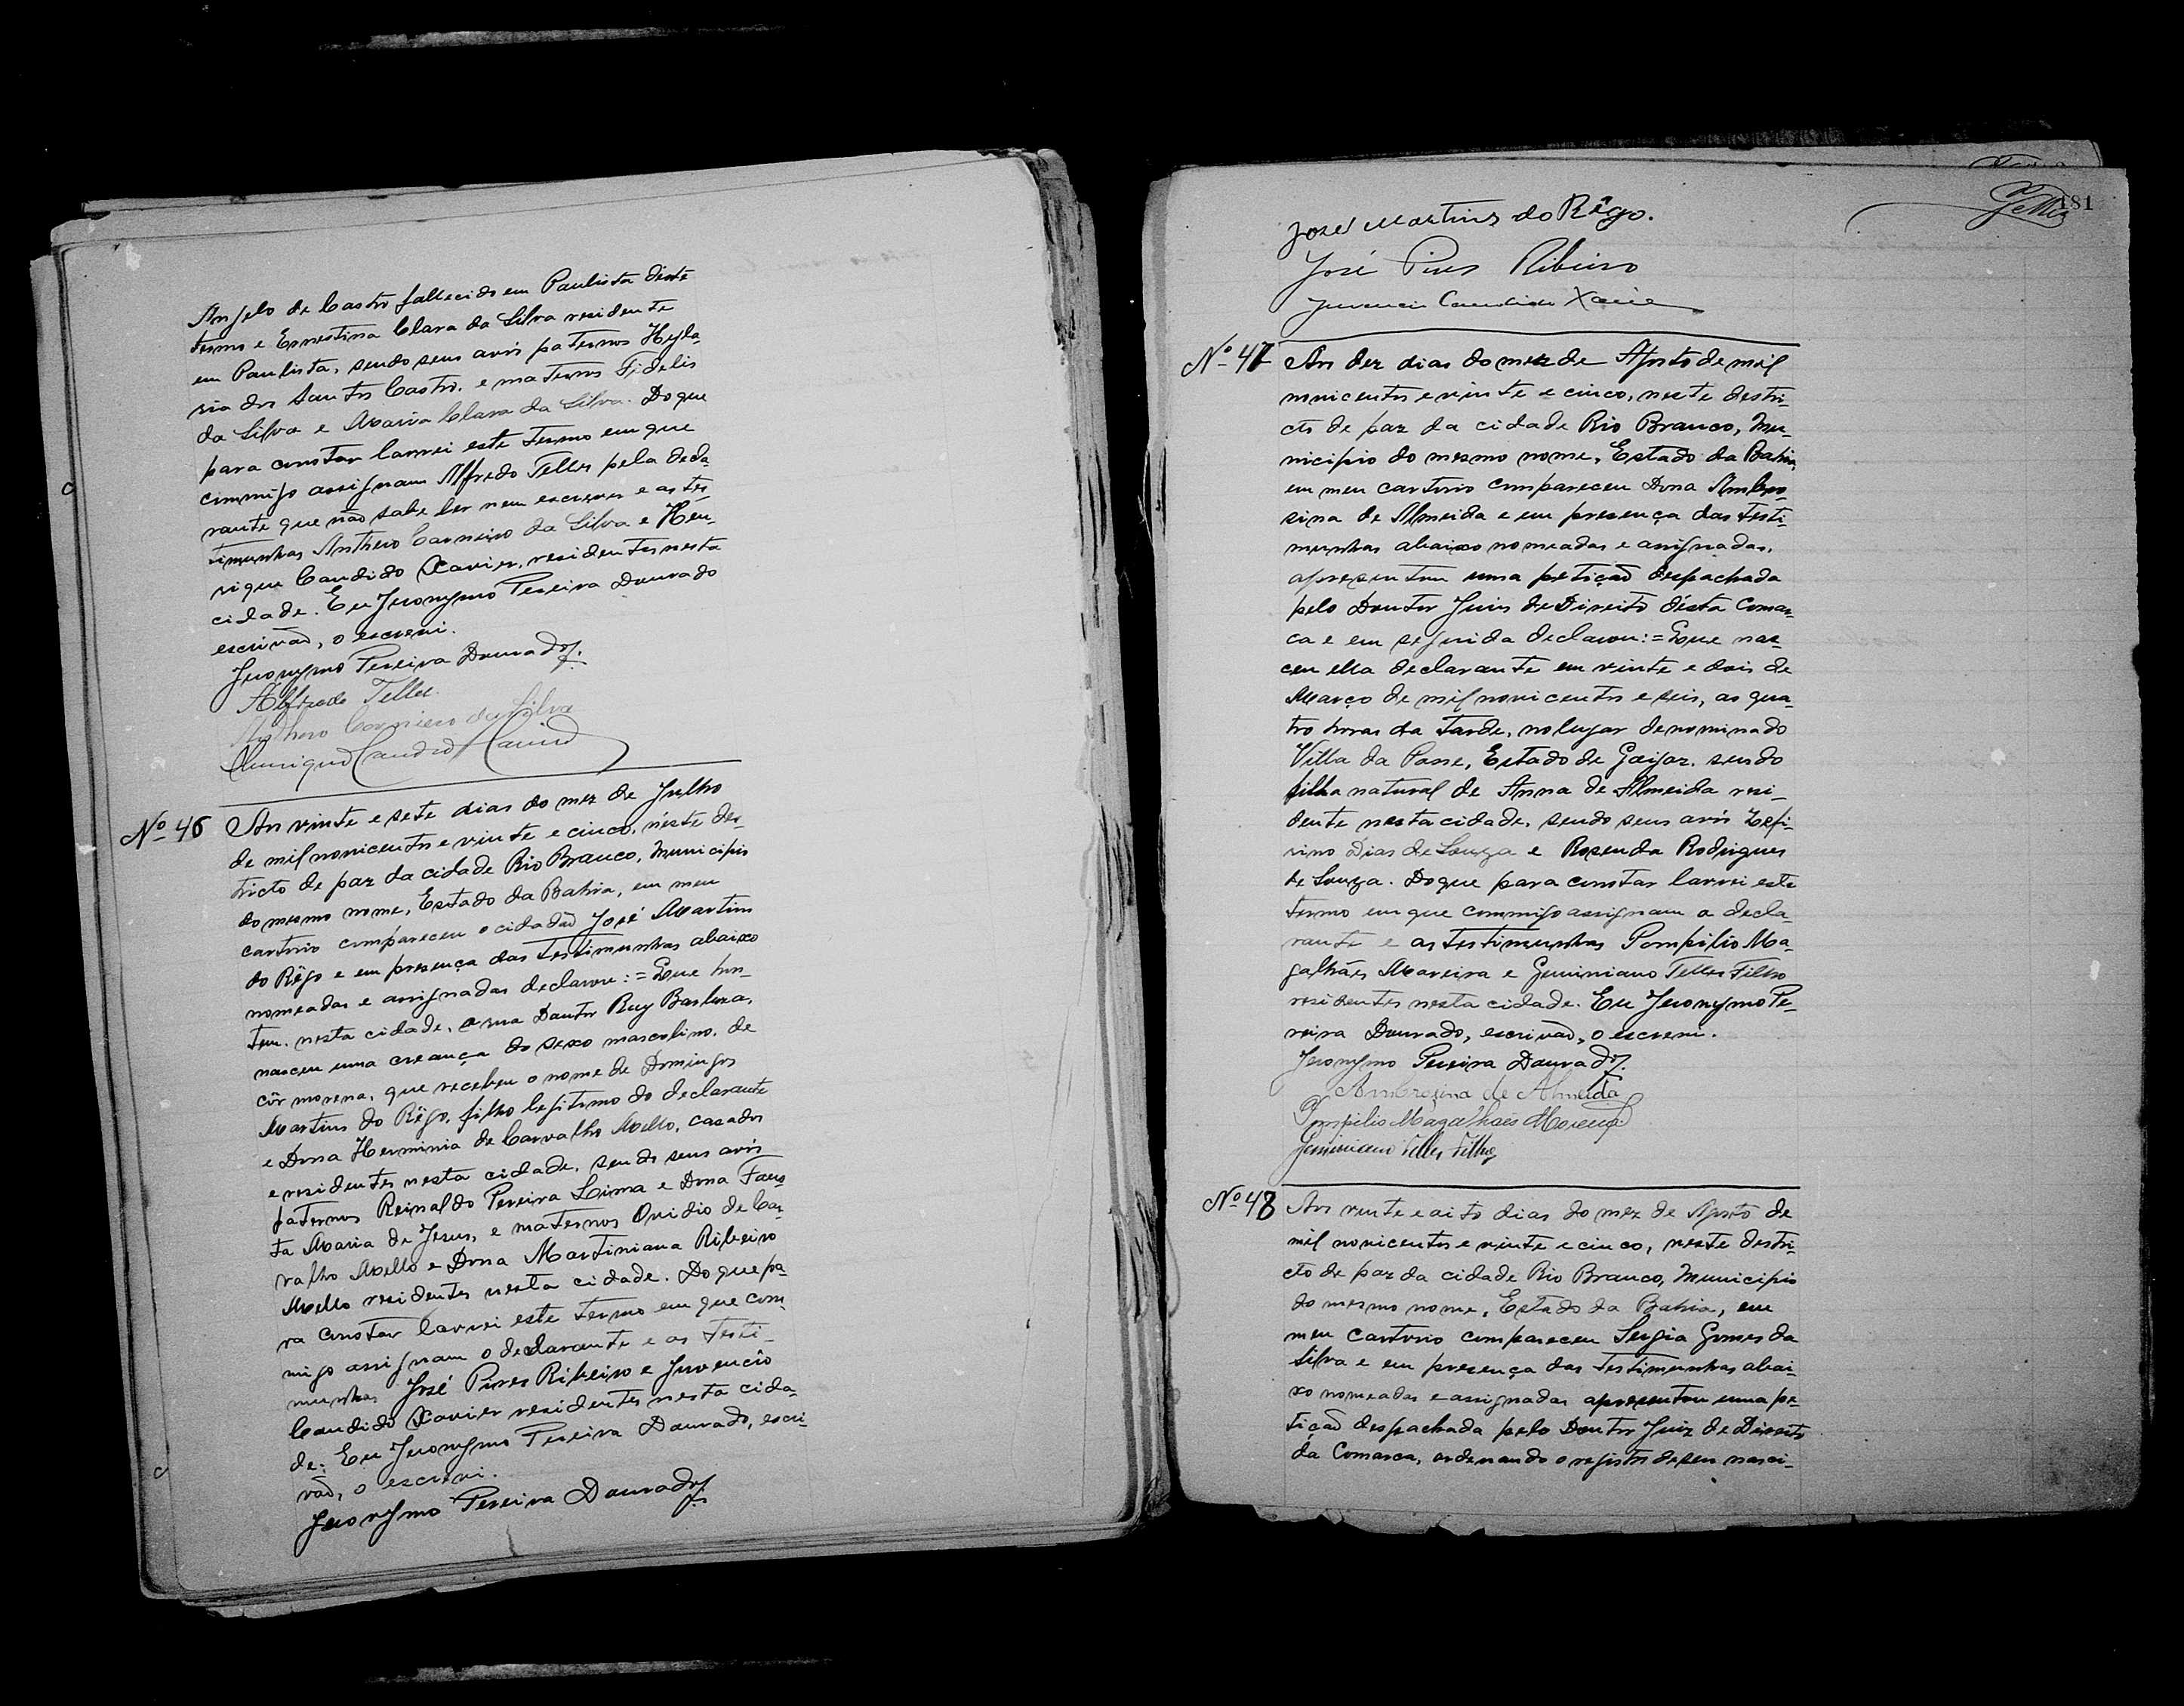 Angelo de Castro fallecido em Paulista deste
termo e Ernestina Clara da Silva residente
em Paulista, sendo seus avós paternos Hyla-
ria dos Santos Castro, e maternos Fidelis
da Silva e Maria Clara da Silva. Do que
para constar lavrei este termo em que
commigo assignam Alfredo Telles pela decla-
rante que não sabe ler nem escrever e as tes-
timunhas Anthero Carneiro da Silva e Hen-
rique Candido Xavier, residentes nesta
cidade. Eu Jeronymo Pereira Dourado
escrivão, o escrevi.
Jeronymo Pereira Dourado.
Alfredo Telles.
Anthero Carneiro da Silva
Henrique Candido Xavier
Nº 46 Aos vinte e sete dias do mez de Julho
de mil novicentos e vinte e cinco, n'este des-
tricto de paz da cidade Rio Branco, Municipio
do mesmo nome, Estado da Bahia, em meu
cartorio compareceu o cidadão José Martins
do Rêgo e em presença das testimunhas abaixo
nomeadas e assignadas declarou: = Que hon-
tem, nesta cidade, a rua Doutor Ruy Barboza,
nasceu uma creança do sexo masculino, de
côr morena, que recebeu o nome de Domingos
Martins do Rêgo, filho legitimo do declarante
e Dona Herminia de Carvalho Mello, casados
e residentes nesta cidade, sendo seus avós
paternos Reinaldo Pereira Lima e Dona Faus-
ta Maria de Jesus, e maternos Ovidio de Car-
valho Mello e Dona Martiniana Ribeiro
Mello residentes nesta cidade. Do que pa-
ra constar lavrei este termo em que com-
migo assignam o declarante e as testi-
munhas José Pires Ribeiro e Juvencio
Candido Xavier residentes nesta cida-
de. Eu Jeronymo Pereira Dourado, escri-
vão, o escrevi.
Jeronymo Pereira Dourado
181
José Martins do Rêgo.
José Pires Ribeiro
Juvencio Candido Xavier
Nº 47 Aos dez dias do mez de Agosto de mil
novicentos e vinte e cinco, neste destri-
cto de paz da cidade Rio Branco, Mu-
nicipio do mesmo nome, Estado da Bahia,
em meu cartorio compareceu Dona Ambro-
sina de Almeida e em presença das testi-
munhas abaixo nomeadas e assignadas,
apresentou uma petição despachada
pelo Doutor Juis de Direito désta Comar-
ca e em seguida declarou: = Que nas-
ceu ella declarante em vinte e dois de
Março de mil novicentos e seis, as qua-
tro horas da tarde, no lugar denominado
Villa da Posse, Estado de Goiyaz, sendo
filha natural de Anna de Almeida resi-
dente nesta cidade, sendo seus avós Zefi-
rino Dias de Souza e Rozenda Rodrigues
de Souza. Do que para constar lavrei este
termo em que commigo assignam a decla-
rante e as testimunhas Pompilio Ma-
galhães Moreira e Geminiano Telles Filho
residentes nesta cidade. Eu Jeronymo Pe-
reira Dourado, escrivão, o escrevi.
Jeronymo Pereira Dourado.
Ambrozina de Almeida
Pompilio Magalhães Moreira
Geminiano Telles Filho
Nº 48 Aos vinte e oito dias do mez de Agosto de
mil novicentos e vinte e cinco, neste destri-
cto de paz da cidade Rio Branco, Municipio
do mesmo nome, Estado da Bahia, em
meu cartorio compareceu Sergia Gomes da
Silva e em presença das testimunhas abai-
xo nomeadas e assignadas apresentou uma pe-
tição despachada pelo Doutor Juiz de Direito
da Comarca, ordenando o registo de seu nasci-